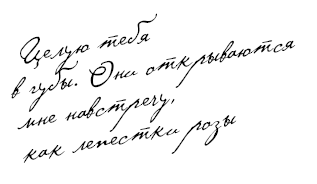 Целую тебя
в губы. Они открываются
мне навстречу,
как лепестки розы